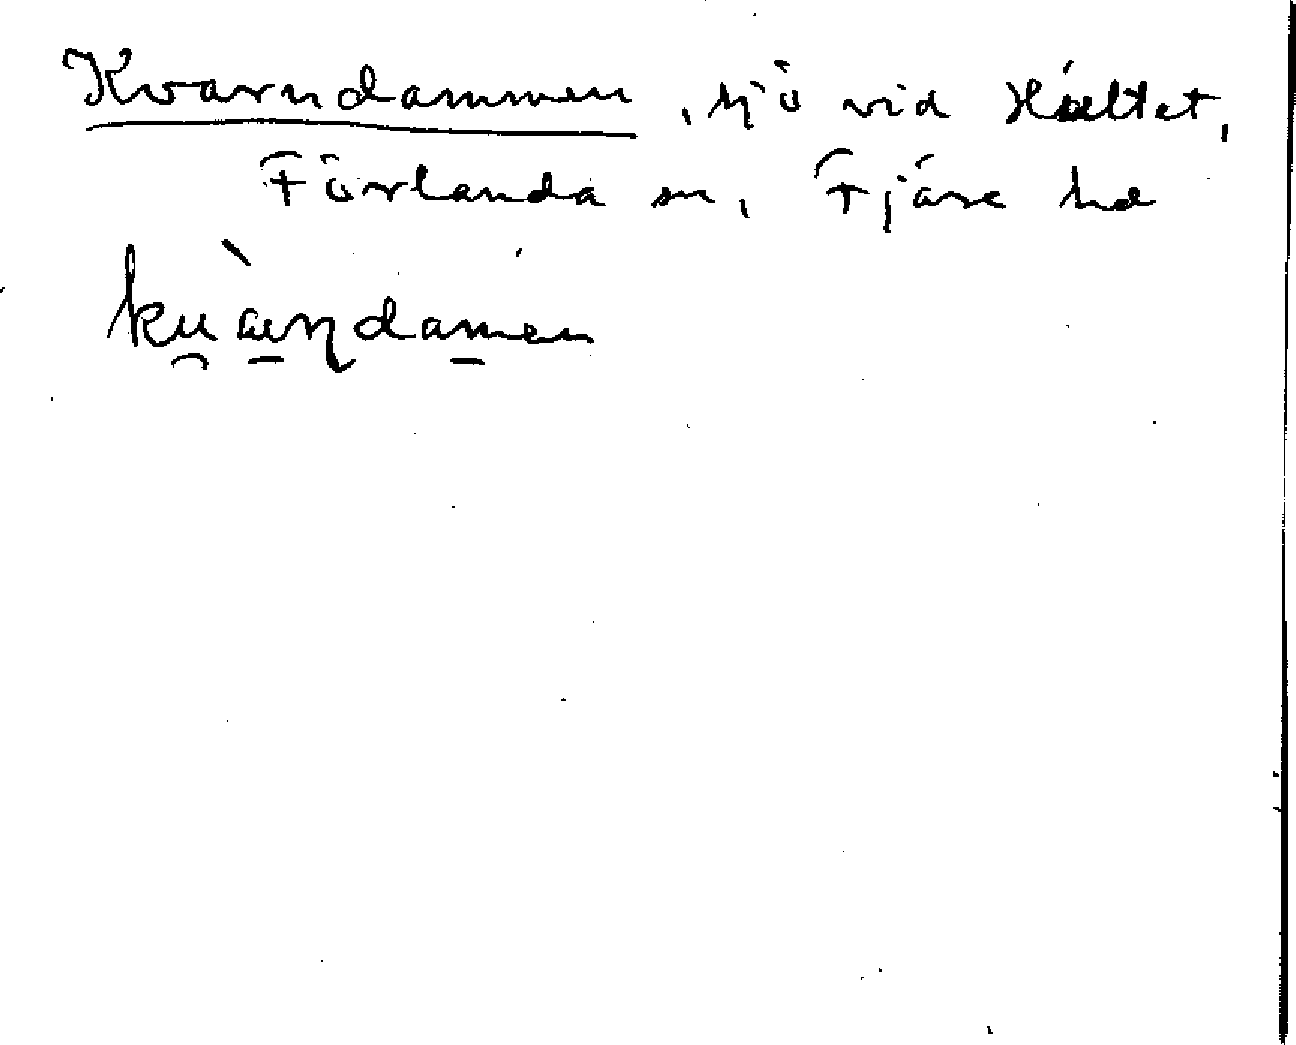 Kvarndammen, sjö vid Hultet,
Förlanda sn, Fjäre hd
ku̯æ̀ɳdamen